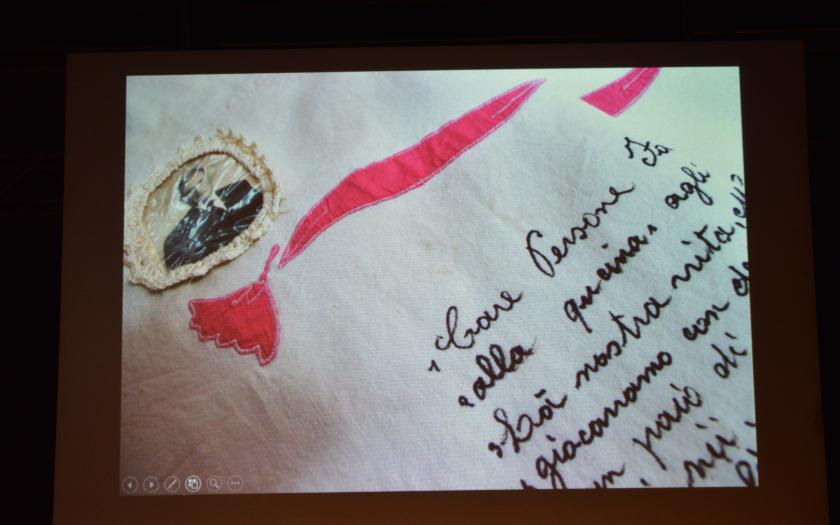 Care Persone Io
alla qucina, agli
Lá nostra vita,
giocavamo con
un paio di
nei